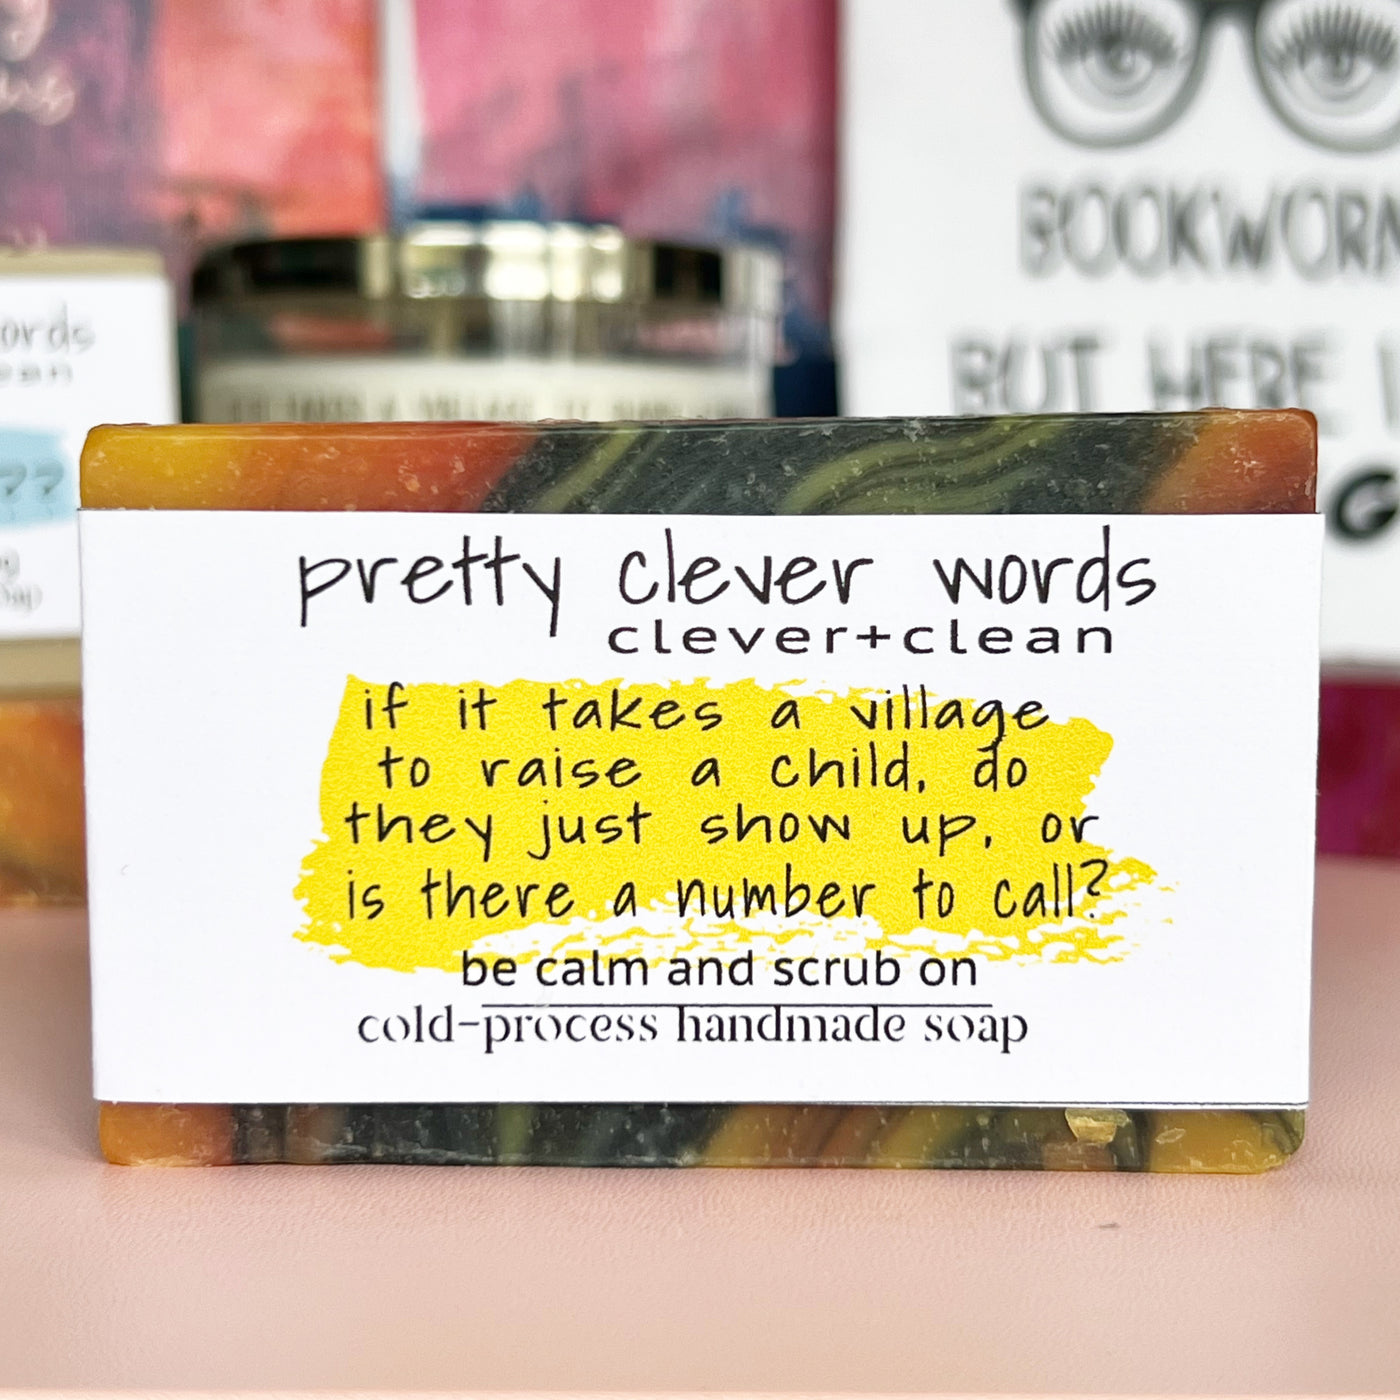 pretty clever words
clever+clean
if it takes a village
to raise a child, do
they just show up, or
is there a number to call?
be calm and scrub on
cold-process handmade soap
BOOKWORM
BUT HERE
G
ords
ean
??